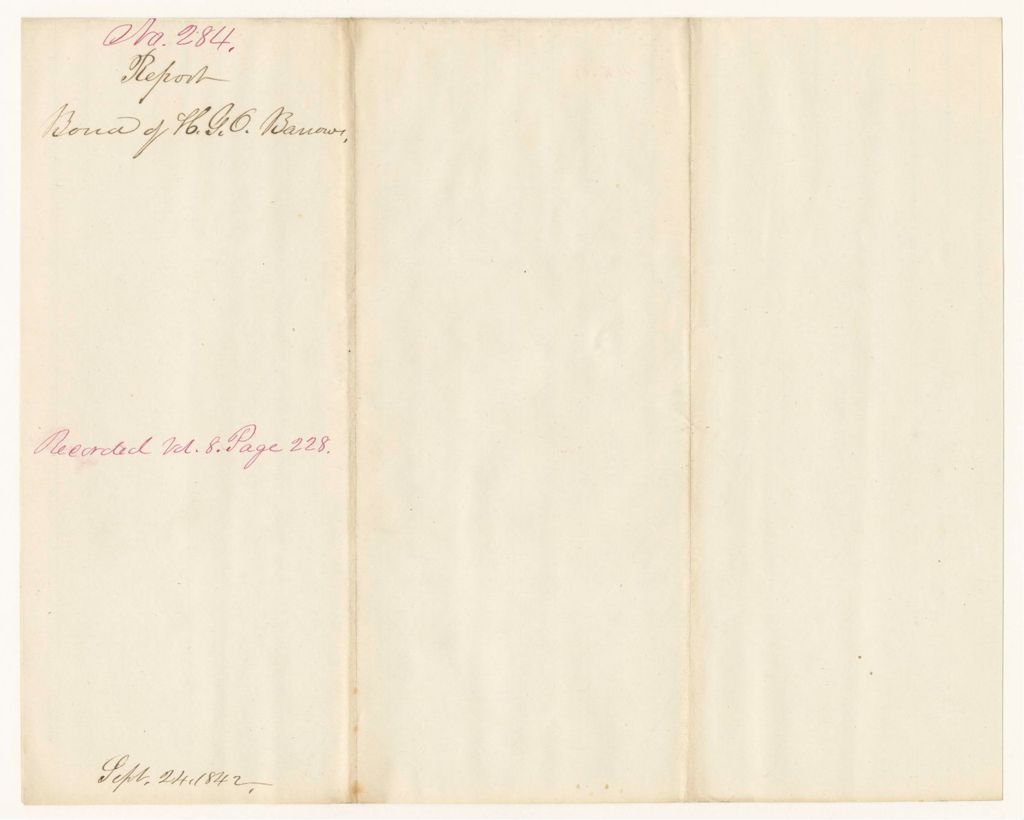 No. 284.
Report
Bond of H. G. O. Barrows,
Recorded Vol. 8. Page 228.
Sept. 24, 1842,